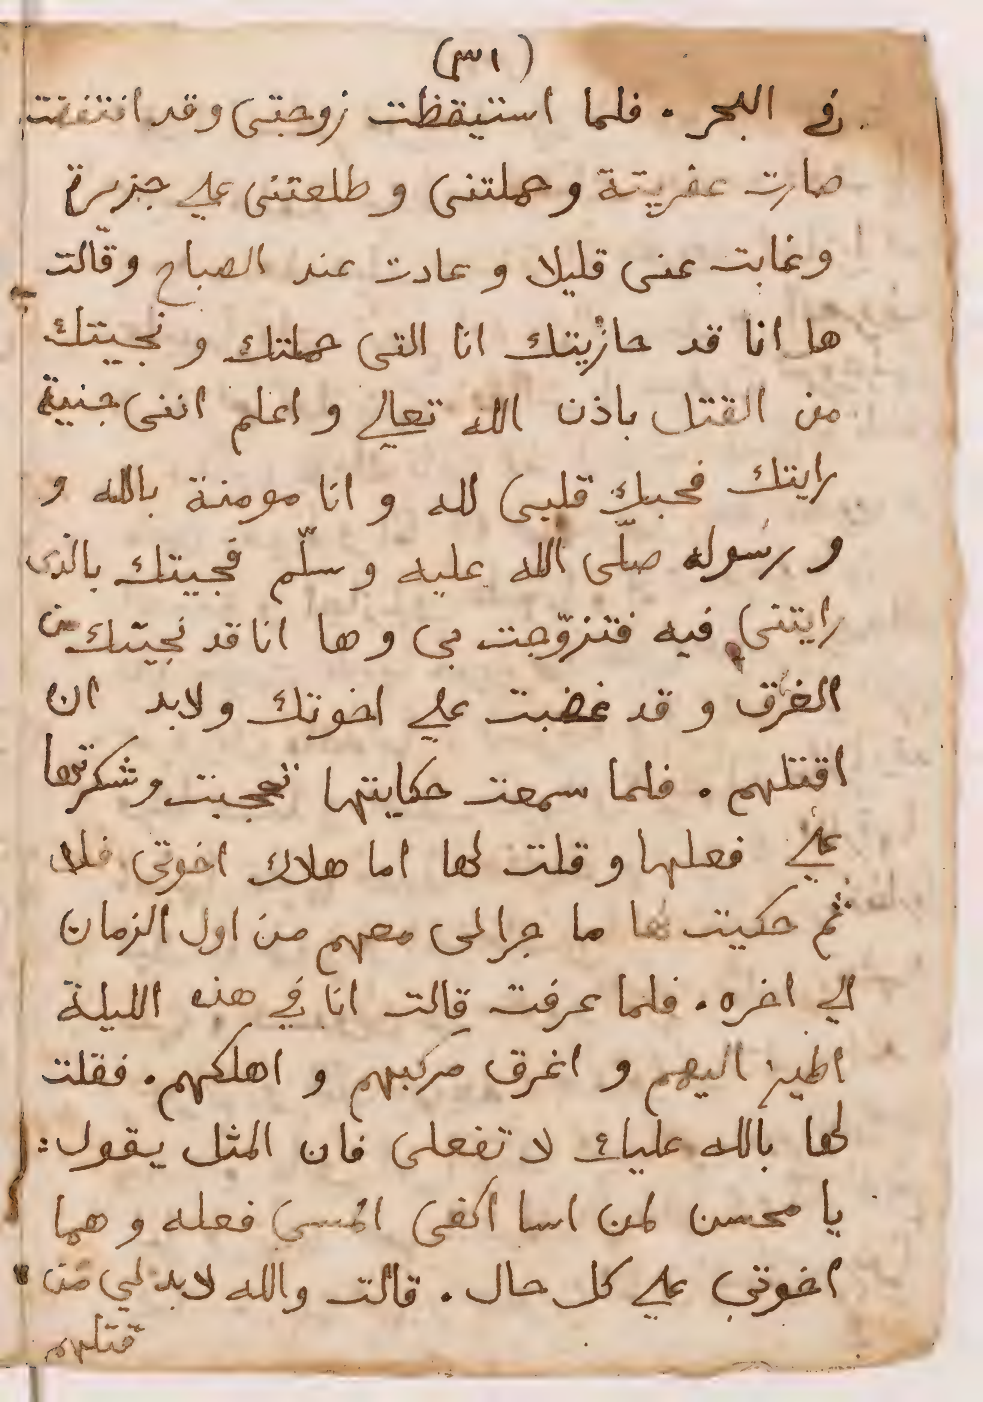 (٣١)
في البحر . فلما استيقظت زوجتى وقد انتفضت
صارت عفريتة و حملتنى و طلعتنى على جزيرة
وغابت عنى قليلا و عادت عند الصباح وقالت
ها انا قد جازيتك انا التى حملتك و نجيتك
من القتل باذن الله تعالى و اعلم اننى جنية
رايتك فحبك قلبى لله و انا مومنة بالله و
و رسوله صلّى الله عليه و سلّم فجيتك بالذى
رايتنى فيه فتزوّجت بى و ها انا قد نجيتك من
الغرق و قد غضبت على اخوتك ولابد ان
اقتلهم . فلما سمعت حكايتها تعجبت وشكرتها
على فعلها و قلت لها اما هلاك اخوتى فلا
ثم حكيت لها ما جرا لى معهم من اول الزمان
الى اخره . فلما عرفت قالت انا في هذه الليلة
اطير اليهم و اغرق مركبهم و اهلكهم . فقلت
لها بالله عليك لا تفعلى فان المثل يقول :
يا محسن لمن اسا اكفى المسى فعله و هما
اخوتى على كل حال . قالت والله لابد لى من
قتلهم